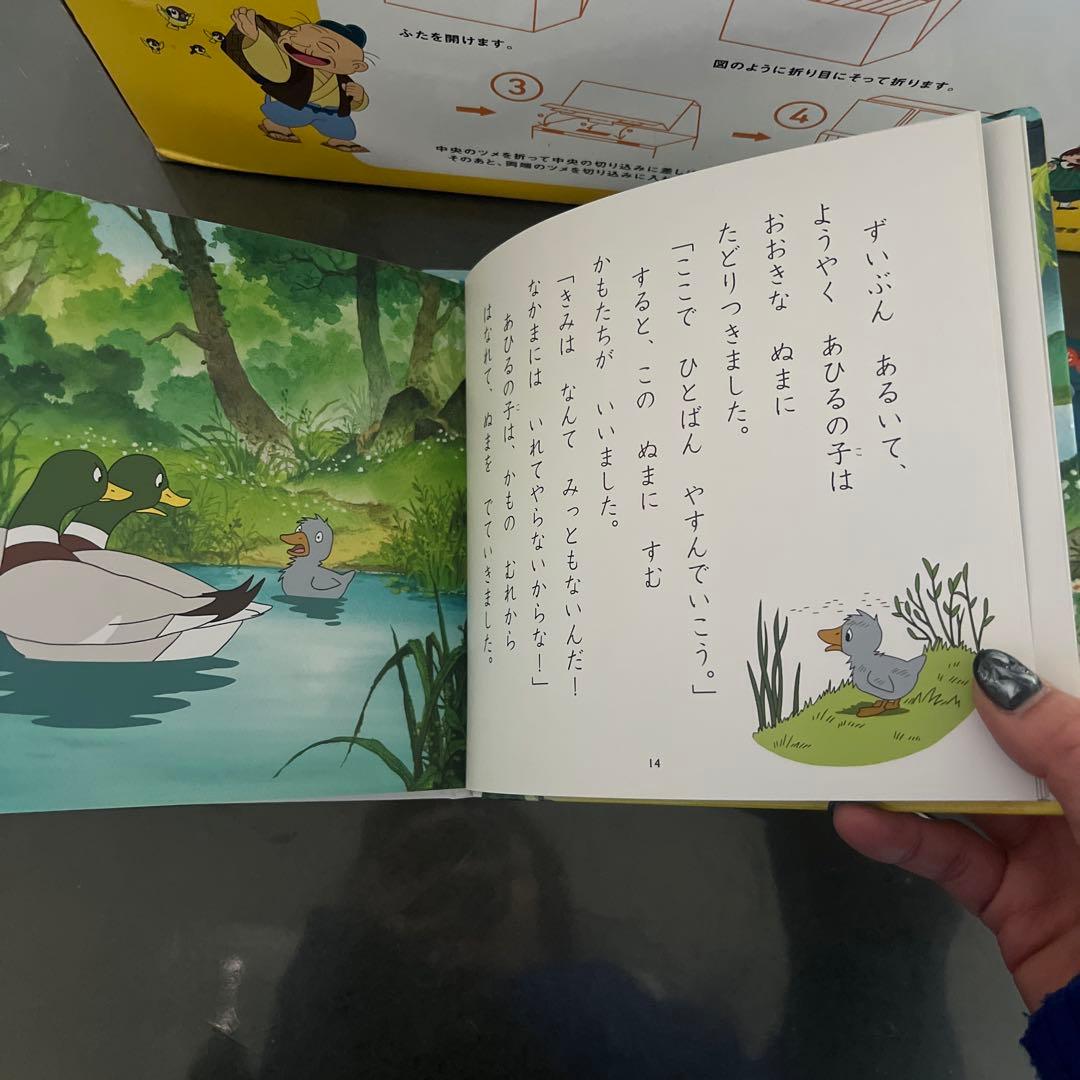 ふたを開けます。
図のように折り目にそって折ります。
③
④
中央のツメを折って中央の切り込みに差し
そのあと、両端のツメを切り込みに入れ
ずいぶん　あるいて、
ようやく　あひるの子は
こ
おおきな　ぬまに
たどりつきました。
「ここで　ひとばん　やすんでいこう。」
すると、この　ぬまに　すむ
かもたちが　いいました。
「きみは　なんて　みっともないんだ！
なかまには　いれてやらないからな！」
あひるの子は、かもの　むれから
こ
はなれて、ぬまを　でていきました。
14